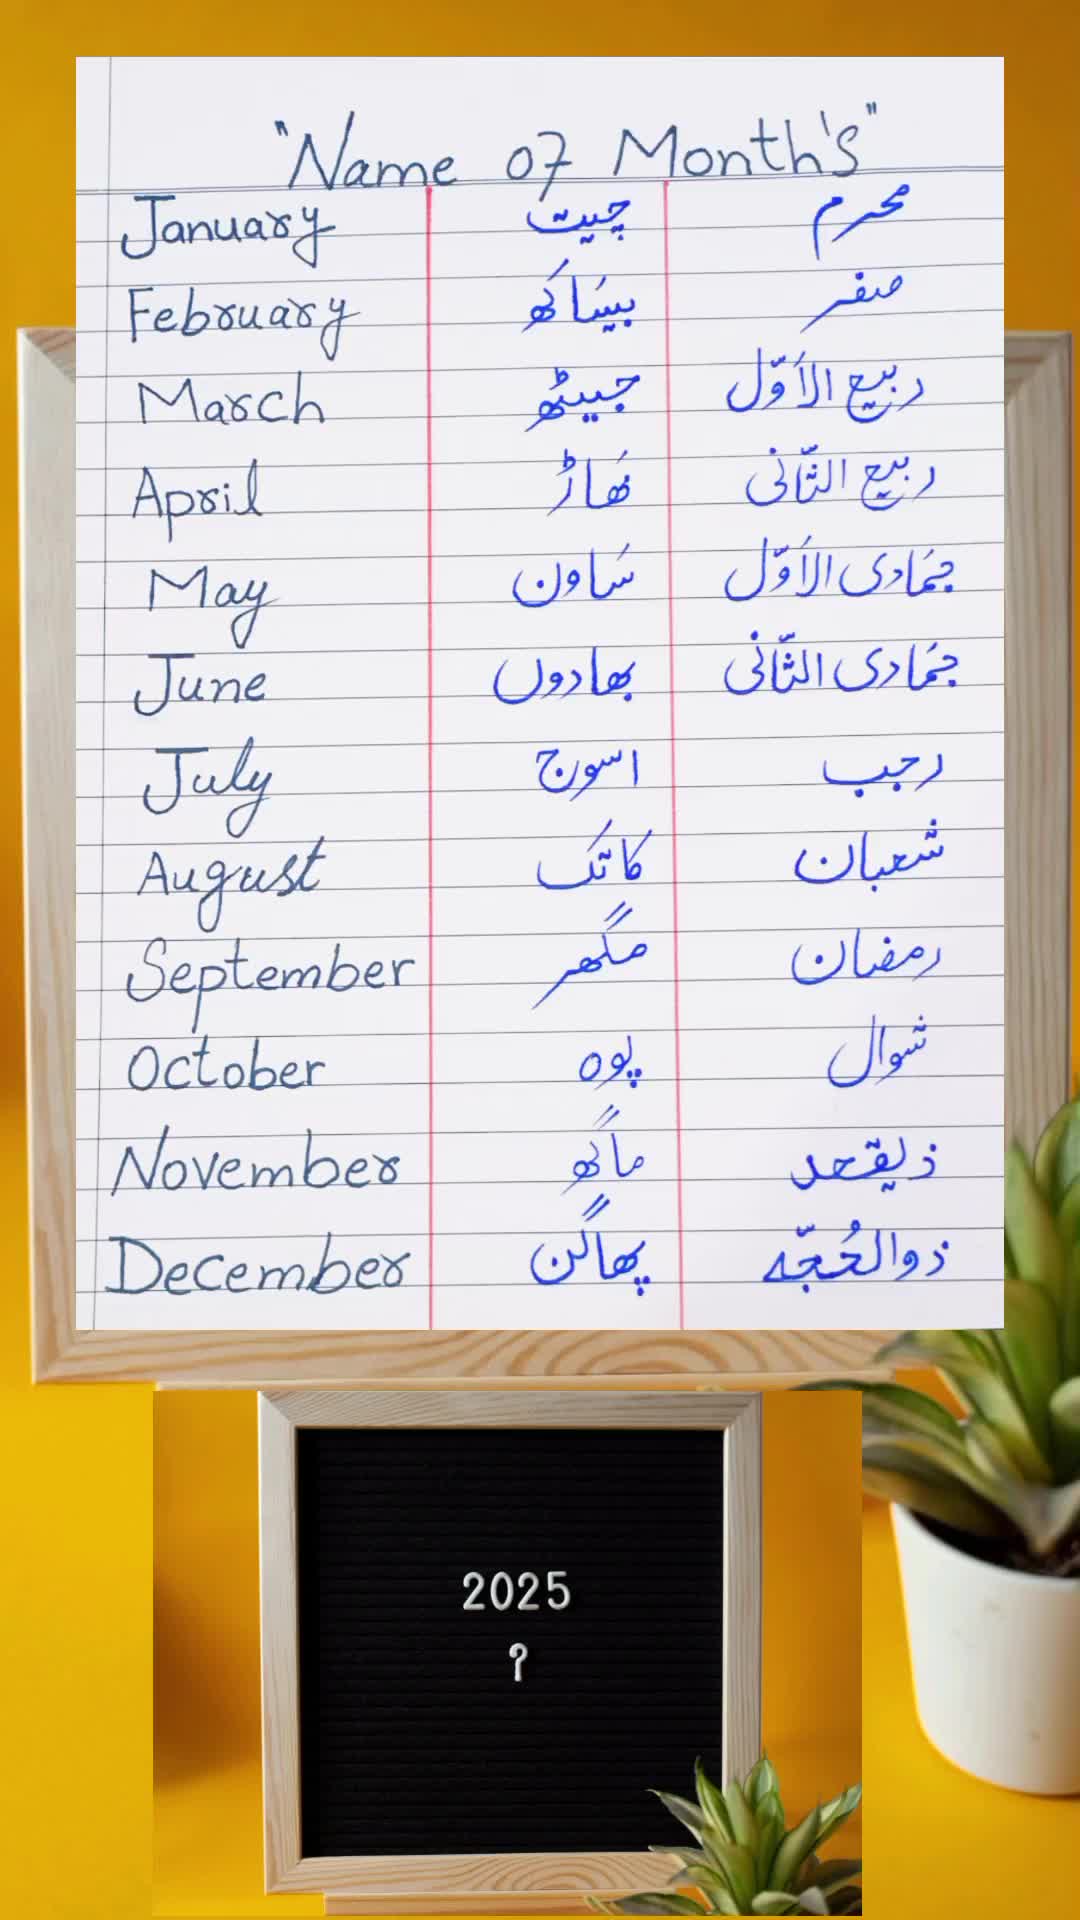 "Name of Month's"
January چیت محرم
February بیساکھ صفر
March جیٹھ ربیع الاَوّل
April ھَاڑ ربیع الثّانی
May سَاون جمَادی الاَوّل
June بھادوں جمَادی الثّانی
July اسوج رجب
August کاتک شعبان
September مگھر رمضان
October پوہ شوال
November ماگھ ذیقعد
December پھاگن ذوالحُجّہ
2025
?